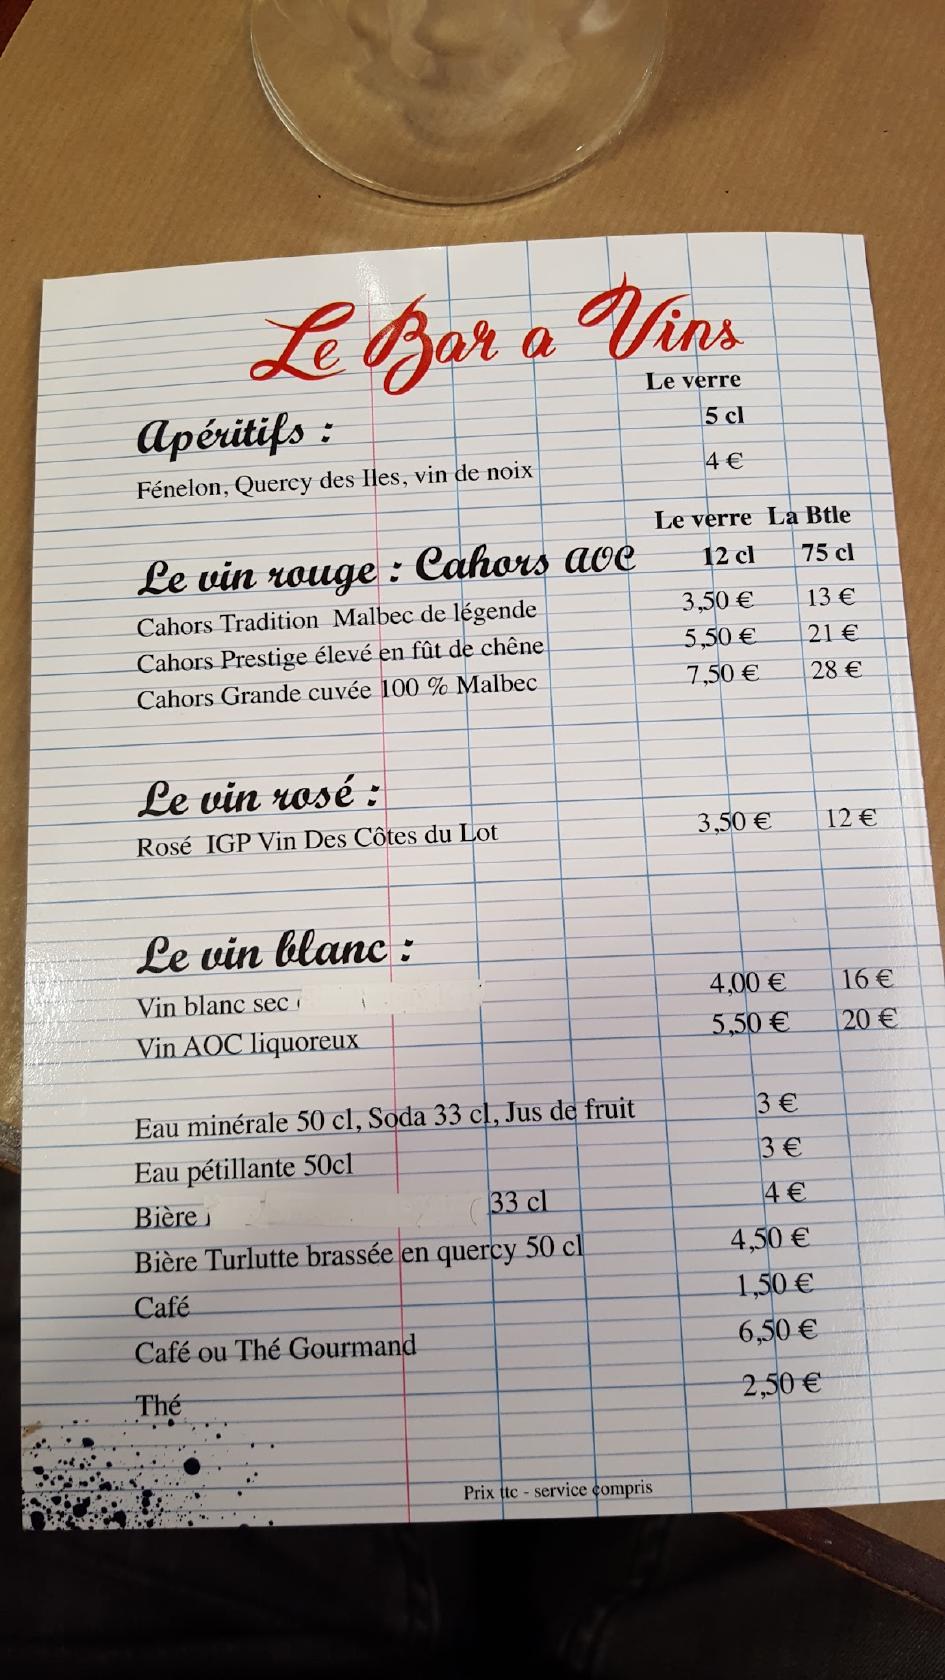 Le Bar a Vins
Le verre
Apéritifs : 5 cl
Fénelon, Quercy des Iles, vin de noix 4 €
Le verre La Btle
Le vin rouge : Cahors AOC 12 cl 75 cl
Cahors Tradition Malbec de légende 3,50 € 13 €
Cahors Prestige élevé en fût de chêne 5,50 € 21 €
Cahors Grande cuvée 100 % Malbec 7,50 € 28 €
Le vin rosé :
Rosé IGP Vin Des Côtes du Lot 3,50 € 12 €
Le vin blanc :
Vin blanc sec 4,00 € 16 €
Vin AOC liquoreux 5,50 € 20 €
Eau minérale 50 cl, Soda 33 cl, Jus de fruit 3 €
Eau pétillante 50cl 3 €
Bière 33 cl 4 €
Bière Turlutte brassée en quercy 50 cl 4,50 €
Café 1,50 €
Café ou Thé Gourmand 6,50 €
Thé 2,50 €
Prix ttc - service compris